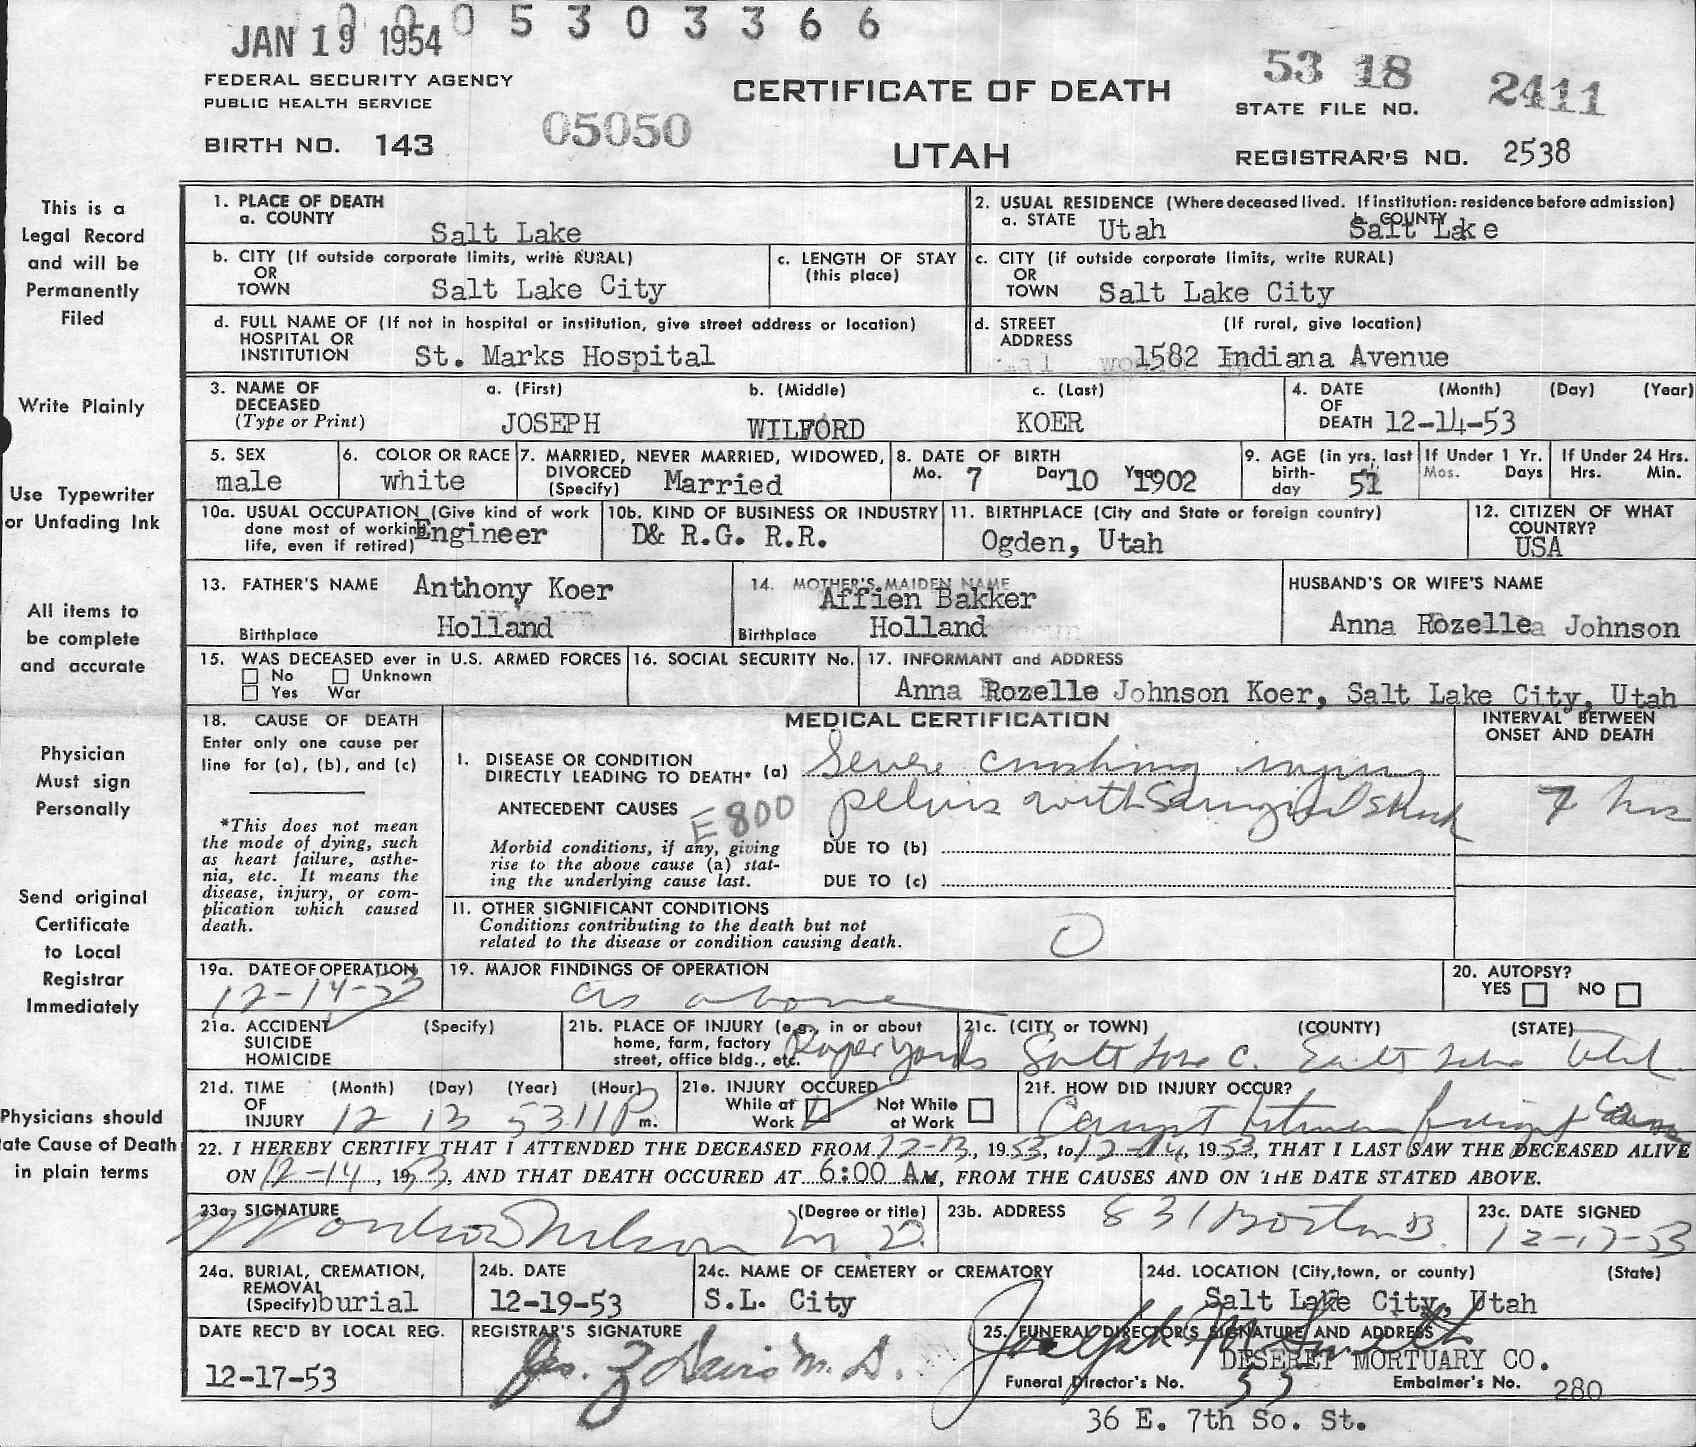 JAN 19 1954
0005303366
FEDERAL SECURITY AGENCY
PUBLIC HEALTH SERVICE
BIRTH NO. 143
05050
CERTIFICATE OF DEATH
UTAH
53 18 2411
STATE FILE NO.
REGISTRAR'S NO. 2538
This is a
Legal Record
and will be
Permanently
Filed
Write Plainly
Use Typewriter
or Unfading Ink
All items to
be complete
and accurate
Physician
Must sign
Personally
Send original
Certificate
to Local
Registrar
Immediately
Physicians should
ate Cause of Death
in plain terms
1. PLACE OF DEATH
a. COUNTY
Salt Lake
2. USUAL RESIDENCE (Where deceased lived. If institution: residence before admission)
a. STATE Utah b. COUNTY Salt Lake
b. CITY (If outside corporate limits, write RURAL)
OR
TOWN Salt Lake City
c. LENGTH OF STAY
(this place)
c. CITY (if outside corporate limits, write RURAL)
OR
TOWN Salt Lake City
d. FULL NAME OF (If not in hospital or institution, give street address or location)
HOSPITAL OR
INSTITUTION St. Marks Hospital
d. STREET (If rural, give location)
ADDRESS 1582 Indiana Avenue
3. NAME OF
DECEASED
(Type or Print)
a. (First) b. (Middle) c. (Last)
JOSEPH WILFORD KOER
4. DATE (Month) (Day) (Year)
OF
DEATH 12-14-53
5. SEX
male
6. COLOR OR RACE
white
7. MARRIED, NEVER MARRIED, WIDOWED,
DIVORCED
(Specify) Married
8. DATE OF BIRTH
Mo. 7 Day 10 Year 1902
9. AGE (in yrs. last
birth-
day 51
If Under 1 Yr.
Mos. Days
If Under 24 Hrs.
Hrs. Min.
10a. USUAL OCCUPATION (Give kind of work
done most of working
life, even if retired) Engineer
10b. KIND OF BUSINESS OR INDUSTRY
D& R.G. R.R.
11. BIRTHPLACE (City and State or foreign country)
Ogden, Utah
12. CITIZEN OF WHAT
COUNTRY?
USA
13. FATHER'S NAME Anthony Koer
Birthplace Holland
14. MOTHER'S MAIDEN NAME
Affien Bakker
Birthplace Holland
HUSBAND'S OR WIFE'S NAME
Anna Rozelle Johnson
15. WAS DECEASED ever in U.S. ARMED FORCES
No Unknown
Yes War
16. SOCIAL SECURITY No.
17. INFORMANT and ADDRESS
Anna Rozelle Johnson Koer, Salt Lake City, Utah
18. CAUSE OF DEATH
Enter only one cause per
line for (a), (b), and (c)
*This does not mean
the mode of dying, such
as heart failure, asthe-
nia, etc. It means the
disease, injury, or com-
plication which caused
death.
MEDICAL CERTIFICATION
INTERVAL BETWEEN
ONSET AND DEATH
I. DISEASE OR CONDITION
DIRECTLY LEADING TO DEATH* (a) Severe crushing injury
pelvis with Surgical Shock
7 hrs
ANTECEDENT CAUSES E800
Morbid conditions, if any, giving
rise to the above cause (a) stat-
ing the underlying cause last.
DUE TO (b)
DUE TO (c)
11. OTHER SIGNIFICANT CONDITIONS
Conditions contributing to the death but not
related to the disease or condition causing death.
0
19a. DATE OF OPERATION
12-14-53
19. MAJOR FINDINGS OF OPERATION
as above
20. AUTOPSY?
YES NO
21a. ACCIDENT (Specify)
SUICIDE
HOMICIDE
21b. PLACE OF INJURY (e.g., in or about
home, farm, factory
street, office bldg., etc. Roper Yards
21c. (CITY or TOWN) (COUNTY) (STATE)
Salt Lake C. Salt Lake Utah
21d. TIME (Month) (Day) (Year) (Hour)
OF
INJURY 12 13 53 11P m.
21e. INJURY OCCURED
While at
Work
Not While
at Work
21f. HOW DID INJURY OCCUR?
Caught between freight cars
22. I HEREBY CERTIFY THAT I ATTENDED THE DECEASED FROM 12-13, 1953, to 12-14, 1953, THAT I LAST SAW THE DECEASED ALIVE
ON 12-14, 1953, AND THAT DEATH OCCURED AT 6:00 A M, FROM THE CAUSES AND ON THE DATE STATED ABOVE.
23a. SIGNATURE (Degree or title)
Nelson M.D.
23b. ADDRESS 831 Boston B.
23c. DATE SIGNED
12-17-53
24a. BURIAL, CREMATION,
REMOVAL
(Specify) burial
24b. DATE
12-19-53
24c. NAME OF CEMETERY or CREMATORY
S.L. City
24d. LOCATION (City, town, or county) (State)
Salt Lake City, Utah
DATE REC'D BY LOCAL REG.
12-17-53
REGISTRAR'S SIGNATURE
Jas. Z Davis M.D.
25. FUNERAL DIRECTOR'S SIGNATURE AND ADDRESS
Joseph M Smith
DESERET MORTUARY CO.
Funeral Director's No. 55 Embalmer's No. 280
36 E. 7th So. St.